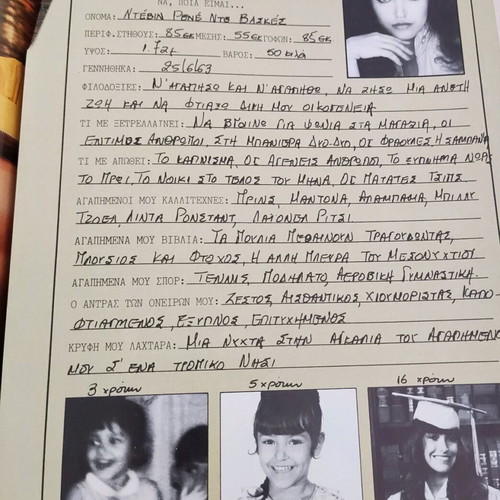 ΝΑ, ΠΟΙΑ ΕΙΜΑΙ...
ΟΝΟΜΑ: ΝΤΕΒΙΝ ΡΕΝΕ ΝΤΕ ΒΑΣΚΕΣ
ΠΕΡΙΦ.ΣΤΗΘΟΥΣ: 85εκ ΜΕΣΗΣ: 55εκ ΓΟΦΩΝ: 85εκ
ΥΨΟΣ: 1.72μ ΒΑΡΟΣ: 50 κιλά
ΓΕΝΝΗΘΗΚΑ: 25/6/63
ΦΙΛΟΔΟΞΙΕΣ: Ν' ΑΓΑΠΗΣΩ ΚΑΙ Ν' ΑΓΑΠΗΘΩ, ΝΑ ΖΗΣΩ ΜΙΑ ΑΝΕΤΗ
ΖΩΗ ΚΑΙ ΝΑ ΦΤΙΑΞΩ ΔΙΚΗ ΜΟΥ ΟΙΚΟΓΕΝΕΙΑ
ΤΙ ΜΕ ΞΕΤΡΕΛΛΑΙΝΕΙ: ΝΑ ΒΓΑΙΝΩ ΓΙΑ ΨΩΝΙΑ ΣΤΑ ΜΑΓΑΖΙΑ, ΟΙ
ΕΝΤΙΜΟΙ ΑΝΘΡΩΠΟΙ, ΣΤΗ ΜΠΑΝΙΕΡΑ ΔΥΟ-ΔΥΟ, ΟΙ ΦΡΑΟΥΛΕΣ, Η ΣΑΜΠΑΝΙΑ
ΤΙ ΜΕ ΑΠΩΘΕΙ: ΤΟ ΚΑΠΝΙΣΜΑ, ΟΙ ΑΓΕΝΕΙΣ ΑΝΘΡΩΠΟΙ, ΤΟ ΞΥΠΝΗΜΑ ΝΩΡΙΣ
ΤΟ ΠΡΩΙ, ΤΟ ΝΟΙΚΙ ΣΤΟ ΤΕΛΟΣ ΤΟΥ ΜΗΝΑ, ΟΙ ΠΑΤΑΤΕΣ ΤΣΙΠΣ
ΑΓΑΠΗΜΕΝΟΙ ΜΟΥ ΚΑΛΛΙΤΕΧΝΕΣ: ΠΡΙΝΣ, ΜΑΝΤΟΝΑ, ΑΛΑΜΠΑΜΑ, ΜΠΙΛΛΥ
ΤΖΟΕΛ, ΛΙΝΤΑ ΡΟΝΣΤΑΝΤ, ΛΑΙΟΝΕΛ ΡΙΤΣΙ.
ΑΓΑΠΗΜΕΝΑ ΜΟΥ ΒΙΒΛΙΑ: ΤΑ ΠΟΥΛΙΑ ΠΕΘΑΙΝΟΥΝ ΤΡΑΓΟΥΔΩΝΤΑΣ,
ΠΛΟΥΣΙΟΣ ΚΑΙ ΦΤΩΧΟΣ, Η ΑΛΛΗ ΠΛΕΥΡΑ ΤΟΥ ΜΕΣΟΝΥΧΤΙΟΥ
ΑΓΑΠΗΜΕΝΑ ΜΟΥ ΣΠΟΡ: ΤΕΝΝΙΣ, ΠΟΔΗΛΑΤΟ, ΑΕΡΟΒΙΚΗ ΓΥΜΝΑΣΤΙΚΗ.
Ο ΑΝΤΡΑΣ ΤΩΝ ΟΝΕΙΡΩΝ ΜΟΥ: ΖΕΣΤΟΣ, ΑΙΣΘΑΝΤΙΚΟΣ, ΧΙΟΥΜΟΡΙΣΤΑΣ, ΚΑΛΟ-
ΦΤΙΑΓΜΕΝΟΣ, ΕΞΥΠΝΟΣ, ΕΠΙΤΥΧΗΜΕΝΟΣ
ΚΡΥΦΗ ΜΟΥ ΛΑΧΤΑΡΑ: ΜΙΑ ΝΥΧΤΑ ΣΤΗΝ ΑΓΚΑΛΙΑ ΤΟΥ ΑΓΑΠΗΜΕΝΟΥ
ΜΟΥ Σ' ΕΝΑ ΤΡΟΠΙΚΟ ΝΗΣΙ
3 χρόνων 5 χρόνων 16 χρόνων